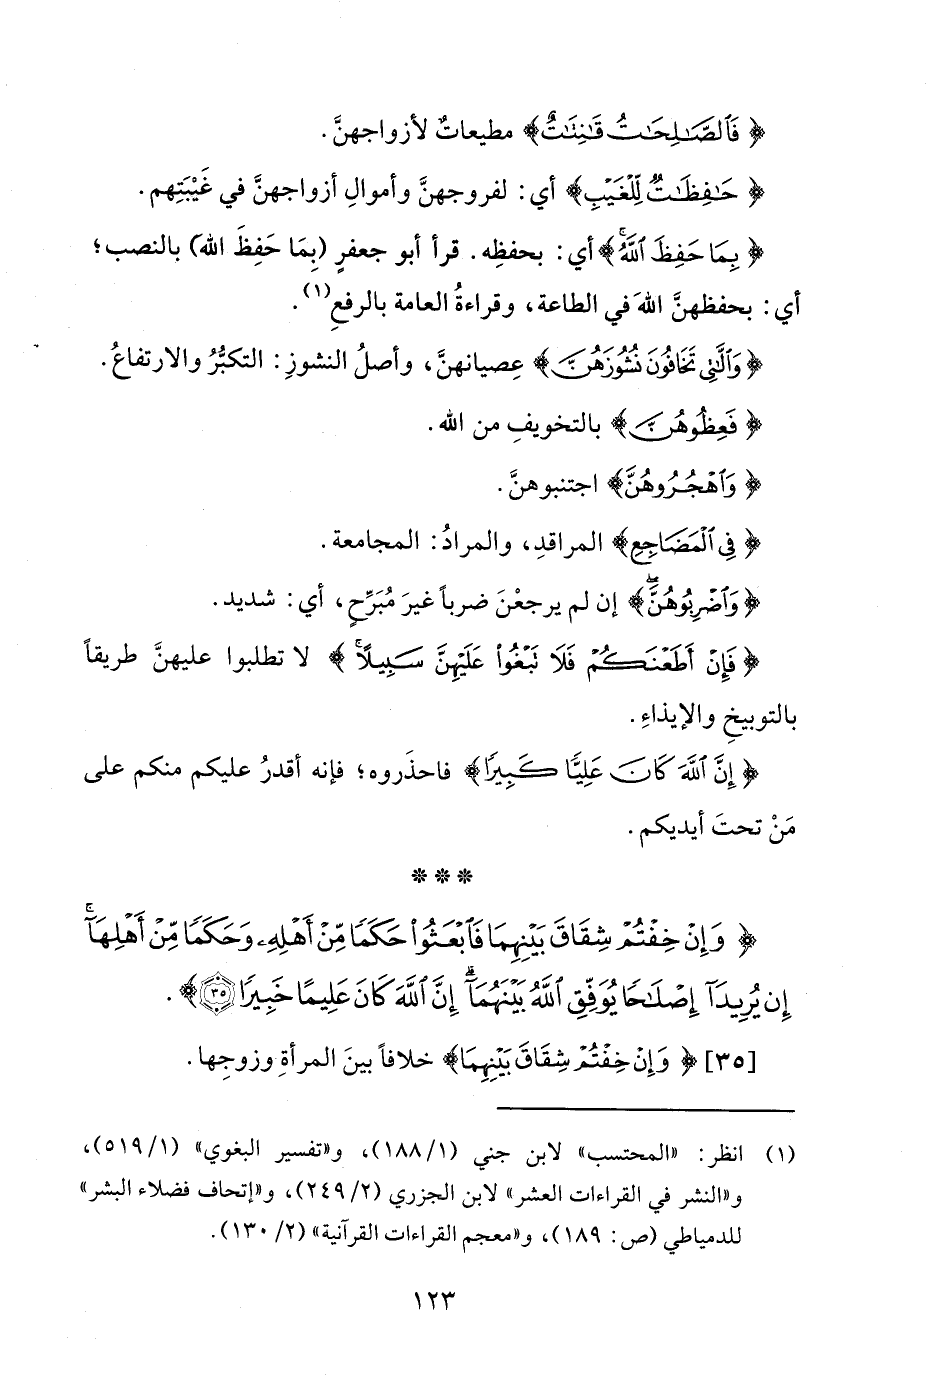 ﴿ فَٱلصَّـٰلِحَـٰتُ قَـٰنِتَـٰتٌ﴾ مطيعاتٌ لأزواجهنَّ.
﴿ حَـٰفِظَـٰتٌ لِّلْغَيْبِ﴾ أي: لفروجهنَّ وأموالِ أزواجهنَّ في غَيْبَتِهم.
﴿ بِمَا حَفِظَ ٱللَّهُۚ﴾ أي: بحفظِه. قرأ أبو جعفرٍ (بِمَا حَفِظَ اللهَ) بالنصب؛
أي: بحفظهنَّ اللهَ في الطاعة، وقراءةُ العامة بالرفعِ(١).
﴿ وَٱلَّـٰتِى تَخَافُونَ نُشُوزَهُنَّ﴾ عِصيانهنَّ، وأصلُ النشوزِ: التكبُّرُ والارتفاعُ.
﴿ فَعِظُوهُنَّ﴾ بالتخويفِ من الله.
﴿ وَٱهْجُرُوهُنَّ﴾ اجتنبوهنَّ.
﴿ فِى ٱلْمَضَاجِعِ﴾ المراقدِ، والمرادُ: المجامعة.
﴿ وَٱضْرِبُوهُنَّۖ﴾ إن لم يرجعْنَ ضرباً غيرَ مُبَرِّحٍ، أي: شديد.
﴿ فَإِنْ أَطَعْنَكُمْ فَلَا تَبْغُوا۟ عَلَيْهِنَّ سَبِيلًاۗ ﴾ لا تطلبوا عليهنَّ طريقاً
بالتوبيخِ والإيذاءِ.
﴿ إِنَّ ٱللَّهَ كَانَ عَلِيًّا كَبِيرًا﴾ فاحذَروه؛ فإنه أقدرُ عليكم منكم على
مَنْ تحتَ أيديكم.
***
﴿ وَإِنْ خِفْتُمْ شِقَاقَ بَيْنِهِمَا فَٱبْعَثُوا۟ حَكَمًا مِّنْ أَهْلِهِۦ وَحَكَمًا مِّنْ أَهْلِهَآۚ
إِن يُرِيدَآ إِصْلَـٰحًا يُوَفِّقِ ٱللَّهُ بَيْنَهُمَآۗ إِنَّ ٱللَّهَ كَانَ عَلِيمًا خَبِيرًا ٣٥﴾.
[٣٥] ﴿ وَإِنْ خِفْتُمْ شِقَاقَ بَيْنِهِمَا﴾ خلافاً بينَ المرأةِ وزوجِها.
(١) انظر: «المحتسب» لابن جني (١/ ١٨٨)، و«تفسير البغوي» (١/ ٥١٩)،
و«النشر في القراءات العشر» لابن الجزري (٢/ ٢٤٩)، و«إتحاف فضلاء البشر»
للدمياطي (ص: ١٨٩)، و«معجم القراءات القرآنية» (٢/ ١٣٠).
١٢٣